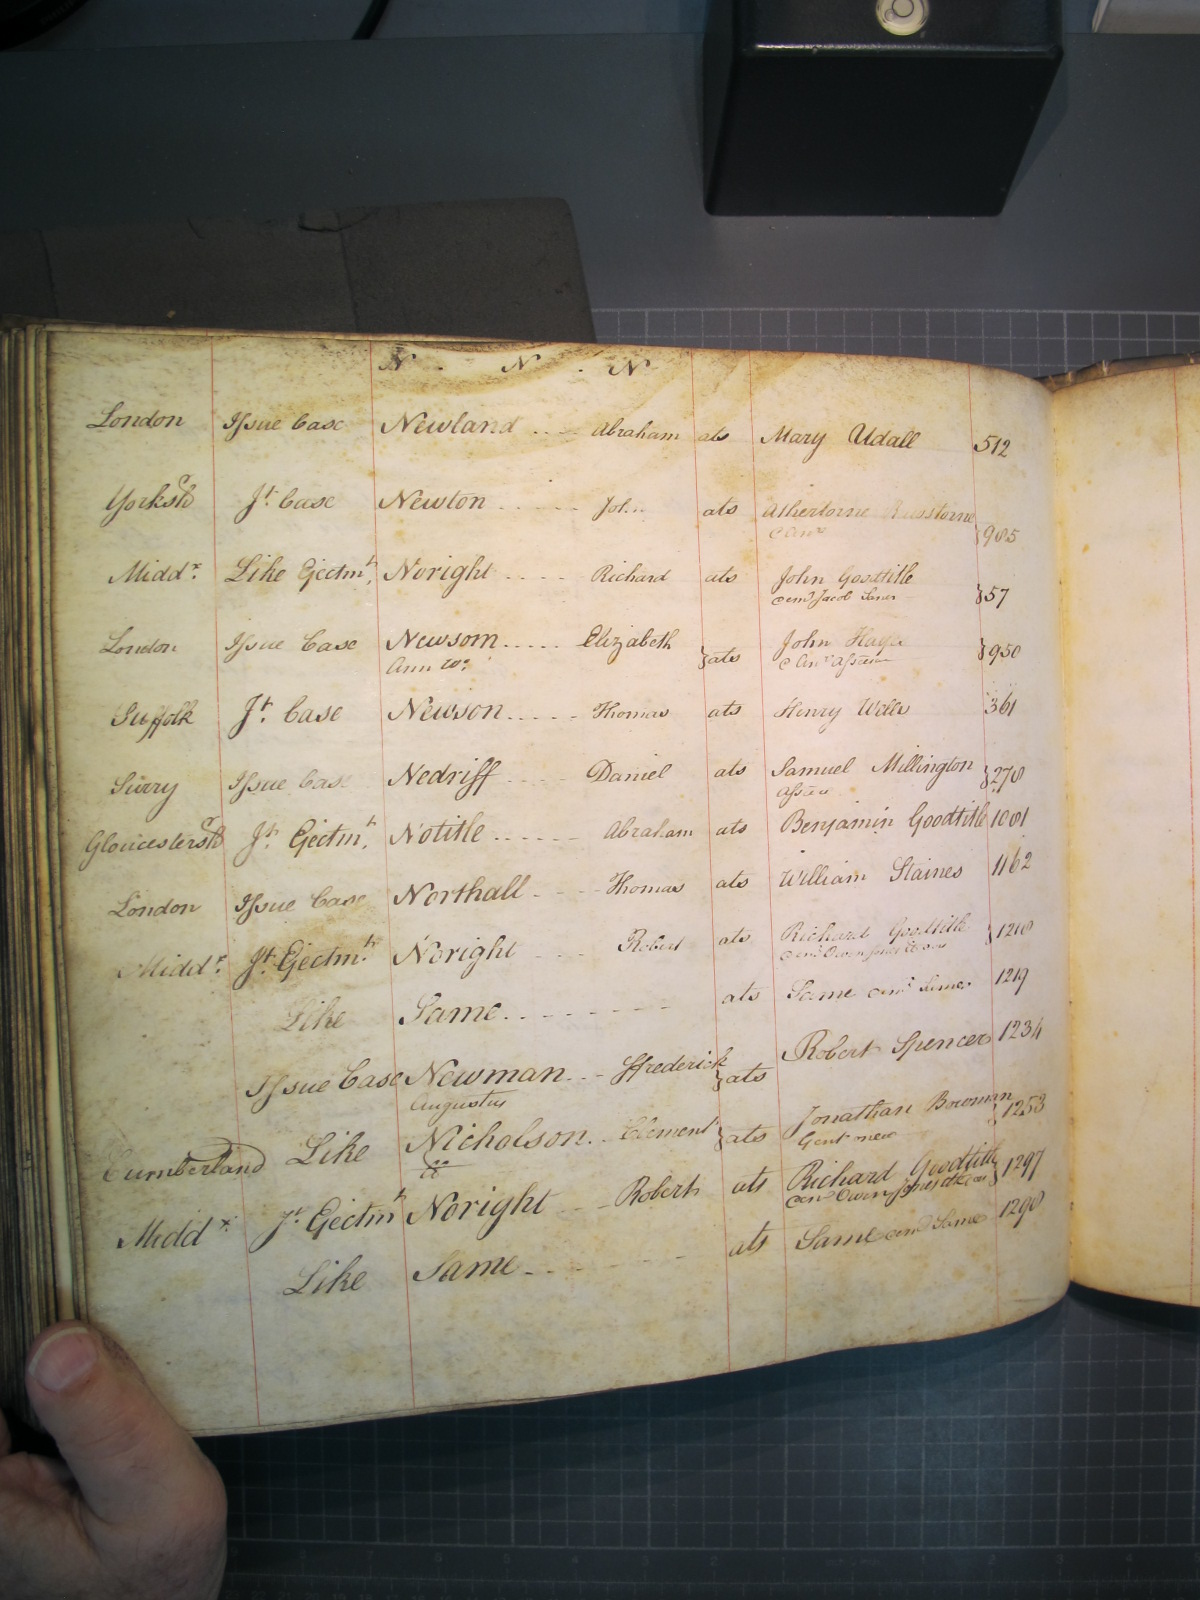 N . N . N
London Issue Case Newland .... Abraham ats Mary Udall 512
Yorksh Jt. Case Newton ..... John ats Athertorne
985
Middx. Like Ejectmt. Noright .... Richard ats John Goodtitle
dem Jacob } 57
London Issue Case Newsom ..... Elizabeth } ats John
Ann wo: } 950
Suffolk Jt. Case Newson ..... Thomas ats Henry Wells 361
Surry Issue Case Nedriff .... Daniel ats Samuel Millington } 278
Assee
Gloucestersh Jt. Ejectmt. Notitle ...... Abraham ats Benjamin Goodtitle 1001
London Issue Case Northall .... Thomas ats William Staines 1162
Middx. Jt. Ejectmt. Noright ... Robert ats Richard Goodtitle } 1218
dem Owen Jones
Like Same ........ ats Same demd Same 1219
Issue Case Newman ... Ffrederick } ats Robert Spencer 1234
Augustus
Cumberland Like Nicholson .. Clement } ats Jonathan Bowman } 1253
Gent one
Middx Jt. Ejectmt Noright ... Robert ats Richard Goodtitle } 1297
dem Owen Jones
Like Same ...... ats Same demd Same 1298